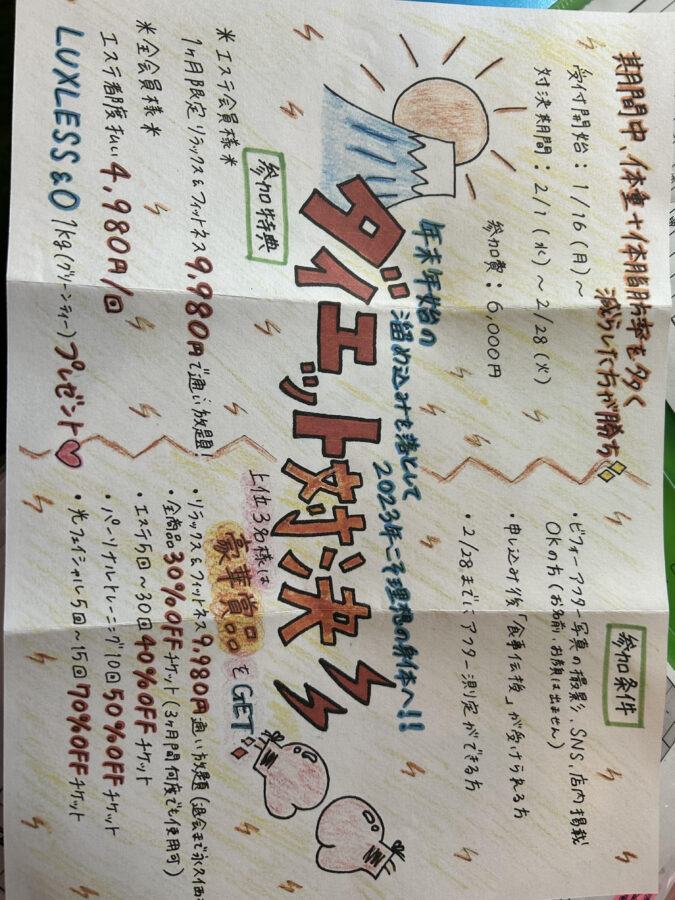 年末年始の
溜め込みを落として
2023年こそ理想の身体へ!!
ダイエット対決
期間中、体重+体脂肪率を多く
減らした方が勝ち
受付開始：1/16(月)～
対決期間：2/1(水)～2/28(火)
参加費：6,000円
参加条件
・ビフォーアフター写真の撮影、SNS、店内掲載
OKの方(お名前、お顔は出ません)
・申し込み後「食事伝授」が受けられる方
・2/28までにアフター測定ができる方
参加特典
※エステ会員様※
1ヶ月限定リラックス&フィットネス9.980円で通い放題!
※全会員様※
エステ都度払い4.980円/回
LUXLESS &O 1kg(グリーンティー)プレゼント♡
上位3名様は
豪華賞品をGET
・リラックス&フィットネス9.980円通い放題(退会まで永久
・全商品30%OFFチケット(3ヶ月間何度でも使用可)
・エステ5回～30回40%OFFチケット
・パーソナルトレーニング10回50%OFFチケット
・光フェイシャル5回～15回70%OFFチケット